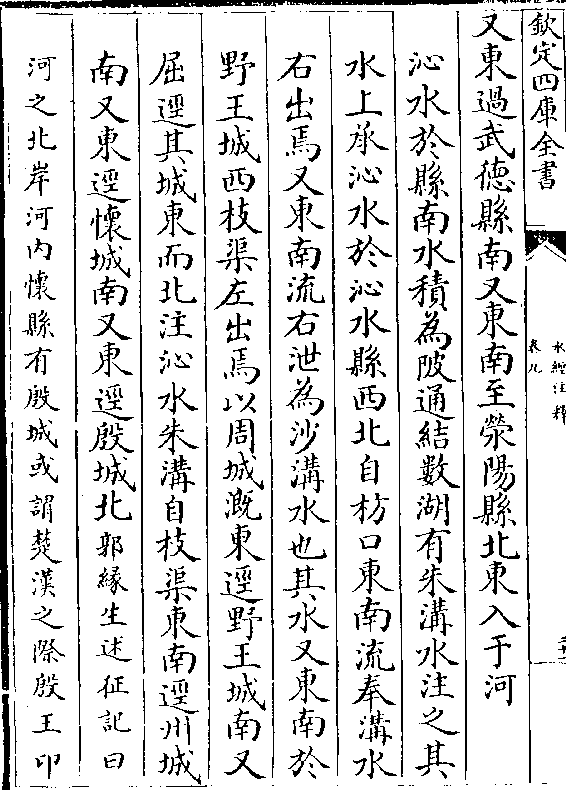 欽定四庫全書
水經注釋
卷九
又東過武德縣南又東南至滎陽縣北東入于河
沁水於縣南水積為陂通結數湖有朱溝水注之其
水上承沁水於沁水縣西北自枋口東南流奉溝水
右出焉又東南流右泄為沙溝水也其水又東南於
野王城西枝渠左出焉以周城溉東逕野王城南又
屈逕其城東而北注沁水朱溝自枝渠東南逕州城
南又東逕懷城南又東逕殷城北郭緣生述征記曰
河之北岸河內懷縣有殷城或謂楚漢之際殷王卬